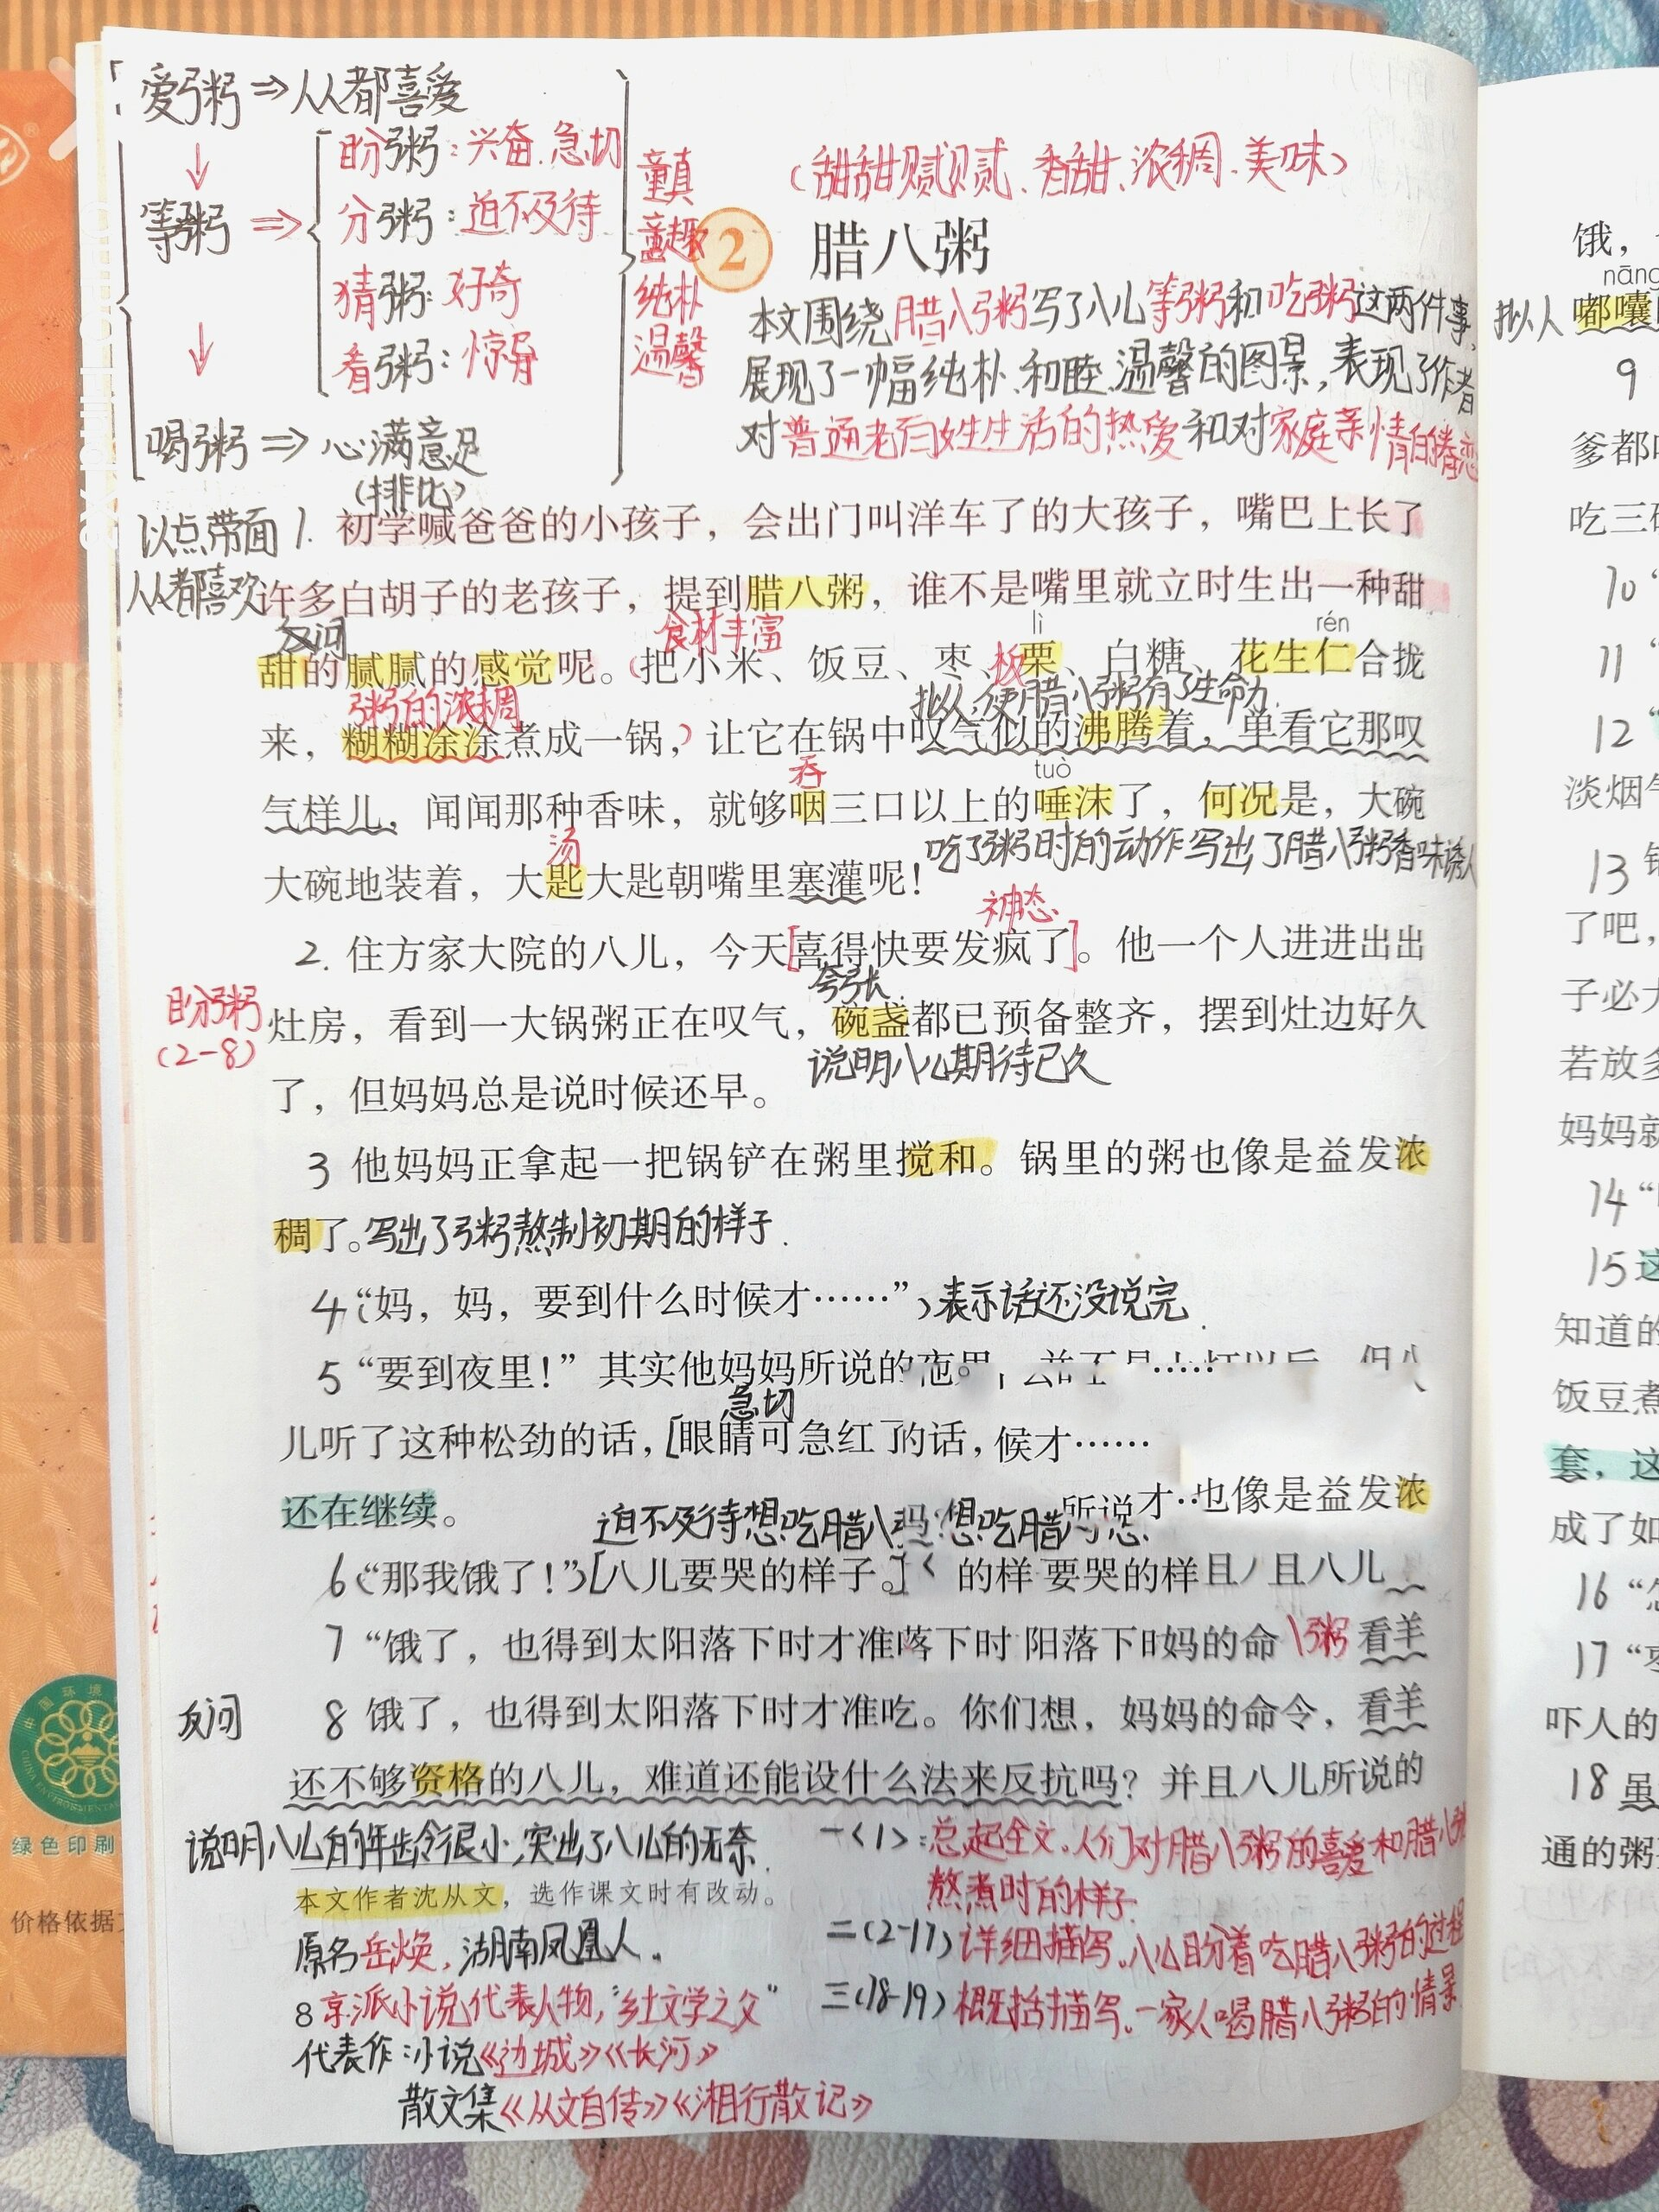 爱粥⇒人人都喜爱
↓
等粥⇒
盼粥:兴奋、急切
分粥:迫不及待
猜粥:好奇
看粥:惊异
↓
喝粥⇒心满意足
童真
童趣
纯朴
温馨
(甜甜腻腻、香甜、浓稠、美味)
2 腊八粥
本文围绕腊八粥写了八儿等粥和吃粥这两件事,
展现了一幅纯朴、和睦、温馨的图景,表现了作者
对普通老百姓生活的热爱和对家庭亲情的眷恋
(排比)
以点带面 1. 初学喊爸爸的小孩子，会出门叫洋车了的大孩子，嘴巴上长了
人人都喜欢
许多白胡子的老孩子，提到腊八粥，谁不是嘴里就立时生出一种甜
反问 食材丰富 lì rén
甜的腻腻的感觉呢。(把小米、饭豆、枣、板栗、白糖、花生仁合拢
粥的浓稠 拟人,使腊八粥有了生命力.
来，糊糊涂涂煮成一锅，)让它在锅中叹气似的沸腾着，单看它那叹
吞 tuò
气样儿，闻闻那种香味，就够咽三口以上的唾沫了，何况是，大碗
汤 吃了粥时的动作写出了腊八粥香味诱人
大碗地装着，大匙大匙朝嘴里塞灌呢！
神态
2. 住方家大院的八儿，今天[喜得快要发疯了]。他一个人进进出出
夸张.
盼粥
(2-8)
灶房，看到一大锅粥正在叹气，碗盏都已预备整齐，摆到灶边好久
说明八儿期待已久
了，但妈妈总是说时候还早。
3 他妈妈正拿起一把锅铲在粥里搅和。锅里的粥也像是益发浓
稠了。写出了粥熬制初期的样子.
4 “妈，妈，要到什么时候才……”表示话还没说完.
5 “要到夜里！” 其实他妈妈所说的
急切
儿听了这种松劲的话，[眼睛可急红了的话，候才……
还在继续。
所说才‥也像是益发浓
迫不及待想吃腊八 想吃腊
6 “那我饿了！”[八儿要哭的样子。] 的样 要哭的样且 且八儿
7 “饿了，也得到太阳落下时才准落下时 阳落下时妈的命 粥 看羊
反问 8 饿了，也得到太阳落下时才准吃。你们想，妈妈的命令，看羊
还不够资格的八儿，难道还能设什么法来反抗吗？并且八儿所说的
说明八儿的年龄很小,突出了八儿的无奈.
本文作者沈从文，选作课文时有改动。
原名岳焕,湖南凤凰人.
8 京派小说代表人物,“乡土文学之父”
代表作:小说《边城》《长河》
散文集《从文自传》《湘行散记》
一<1>:总起全文.人们对腊八粥的喜爱和腊八粥
熬煮时的样子.
二(2-17)详细描写.八儿盼着吃腊八粥的过程
三(18-19)概括描写.一家人喝腊八粥的情景
饿，
nāng
拟人 嘟囔
9
爹都
吃三
10 “
11 “
12 “
淡烟
13
了吧，
子必
若放多
妈妈就
14 “
15 这
知道的
饭豆煮
套，这
成了如
16 “怎
17 “枣
吓人的
18 虽
通的粥
绿色印刷
价格依据